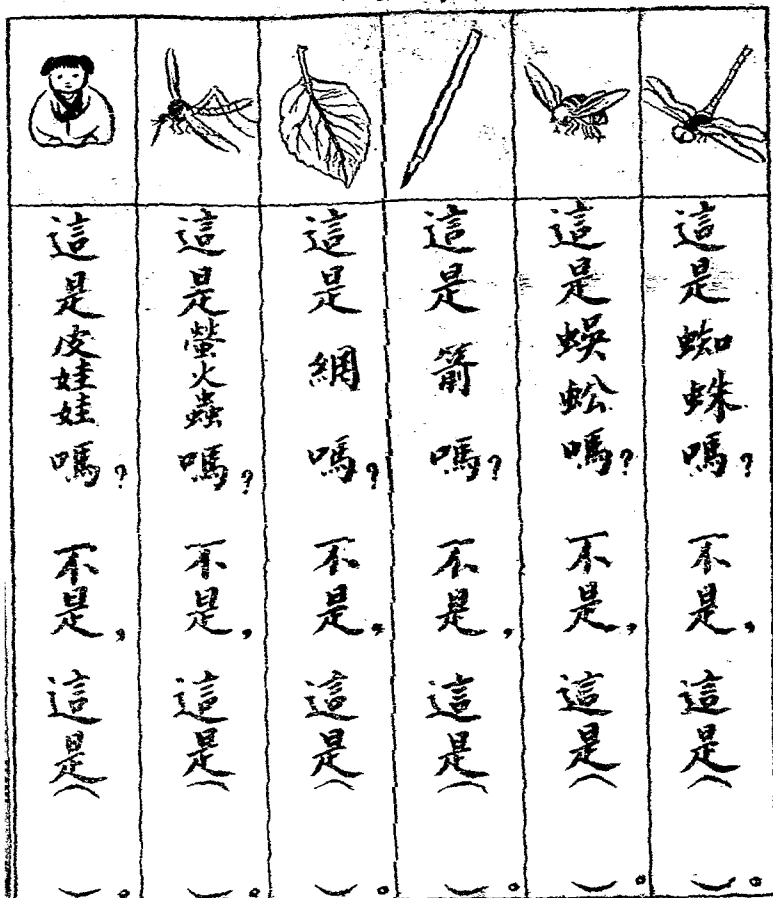 這是蜘蛛嗎?不是,這是( )。
這是蜈蚣嗎?不是,這是( )。
這是箭嗎?不是,這是( )。
這是網嗎?不是,這是( )。
這是螢火蟲嗎?不是,這是( )。
這是皮娃娃嗎?不是,這是( )。